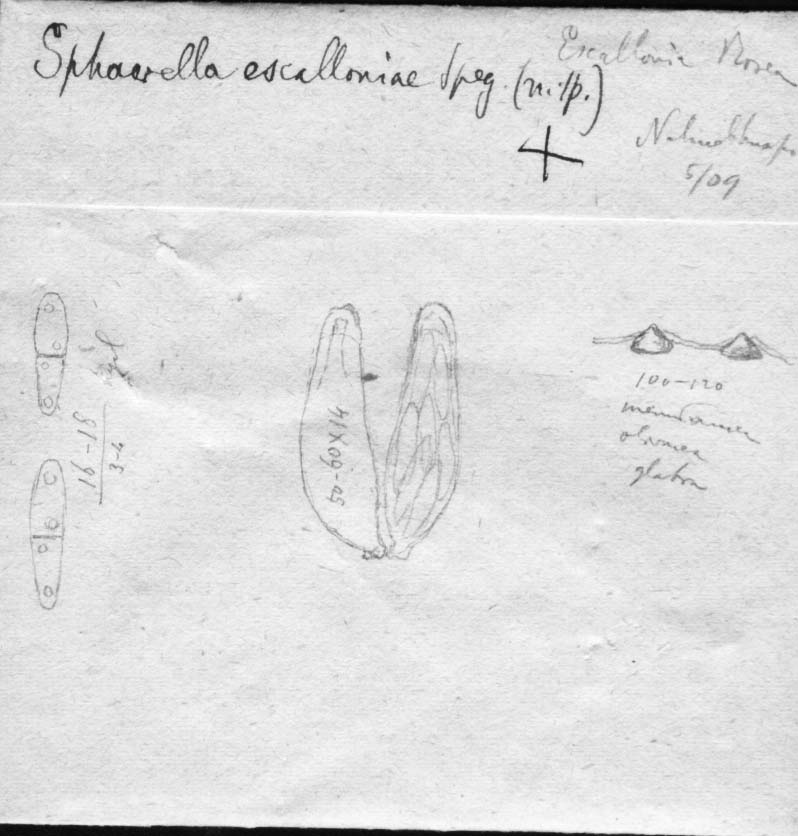 Sphaerella escalloniae Speg. (n. sp.)
Escallonia
5/09
16-18
3-4
50-60X14
100-120
membranacea
olivacea
glabra